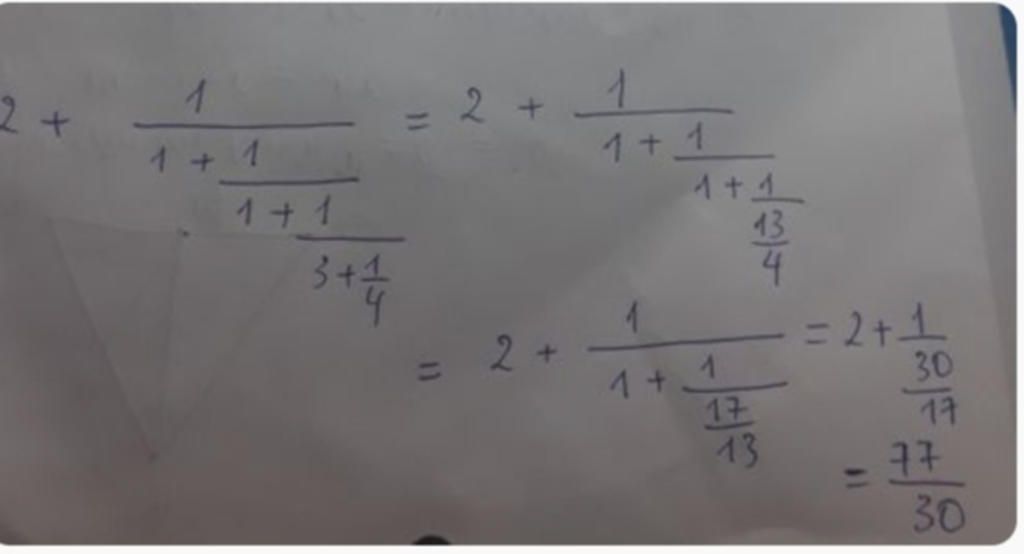 2 + 1/(1 + 1/(1 + 1/(3 + 1/4))) = 2 + 1/(1 + 1/(1 + 1/(13/4)))
= 2 + 1/(1 + 1/(17/13)) = 2 + 1/(30/17)
= 77/30